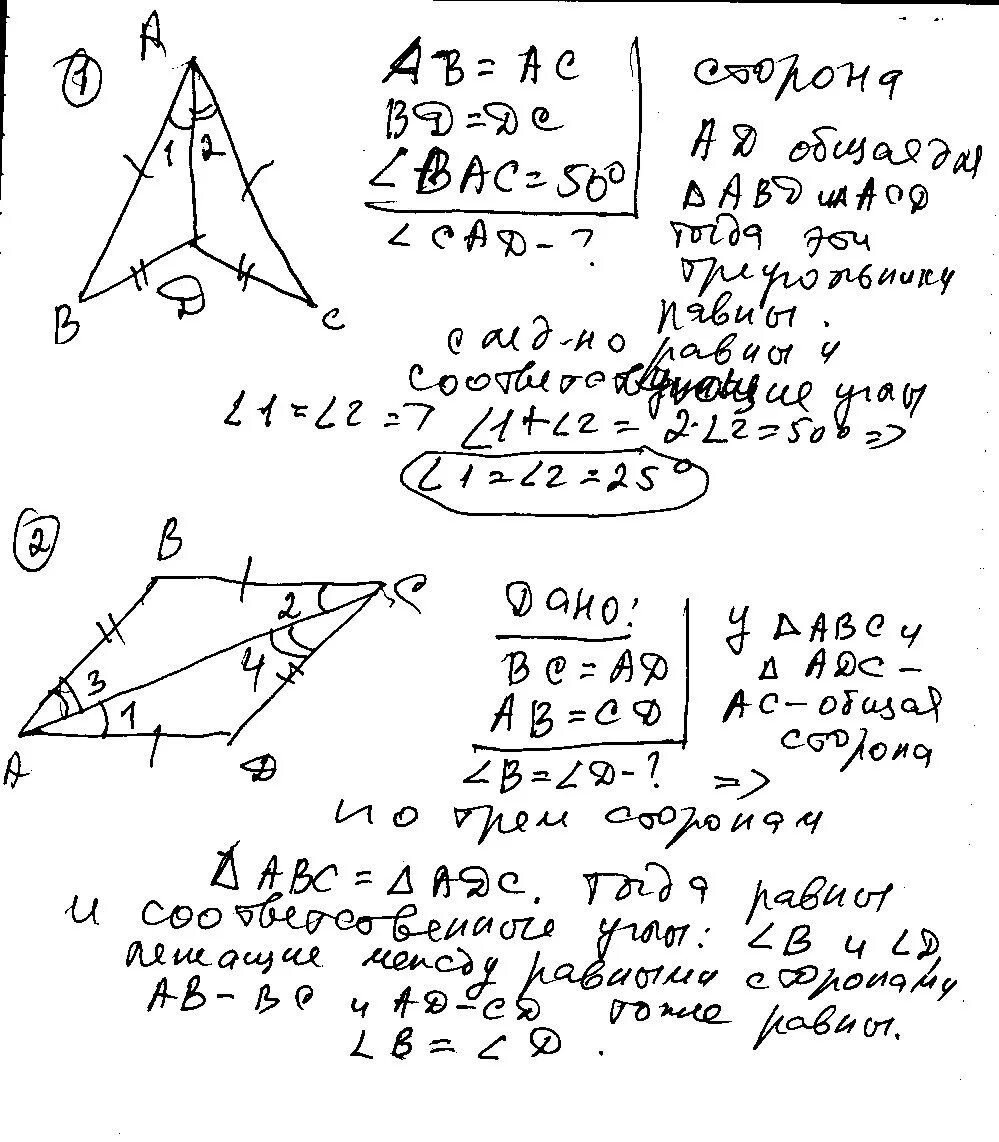 ①
A
1 2
B
D
C
AB = AC
BD = DC
∠BAC = 50°
∠CAD - ?
сторона
AD общая для
△ABD и ACD
тогда эти
треугольники
равны.
след-но равны и
соответствующие углы
∠1 = ∠2 => ∠1 + ∠2 = 2·∠2 = 50° =>
∠1 = ∠2 = 25°
②
B
C
2
4
3
1
A
D
Дано:
BC = AD
AB = CD
∠B = ∠D - ?
У △ABC и
△ADC -
AC - общая
сторона
=>
по трем сторонам
△ABC = △ADC. Тогда равны
и соответственные углы: ∠B и ∠D,
лежащие между равными сторонами
AB - BC и AD - CD тоже равны.
∠B = ∠D.